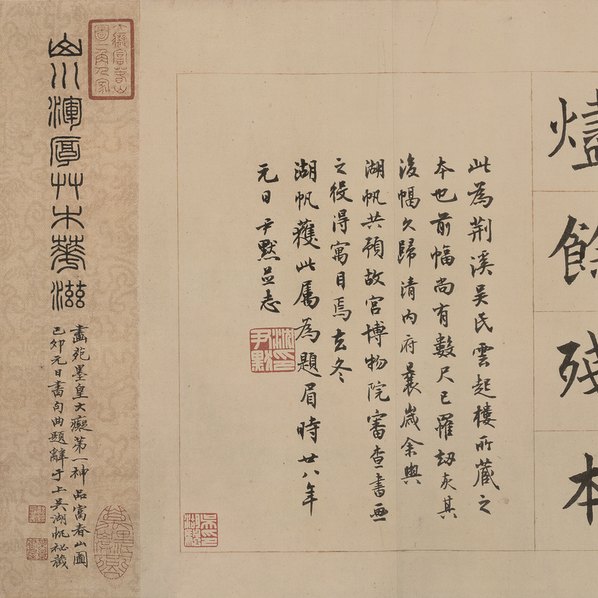 燼餘殘本
此為荆溪吳氏雲起樓所藏之
本也前幅尚有數尺已罹刼灰其
後幅久歸清內府曩歲余與
湖帆共預故宮博物院審查書畫
之役得寓目焉去冬
湖帆獲此属為題眉時廿八年
元日尹默並志
大癡富春山
圖一角人家
山川渾厚艸木華滋
畫苑墨皇大癡第一神品富春山圖
己卯元日書句曲題辭于上吳湖帆祕藏